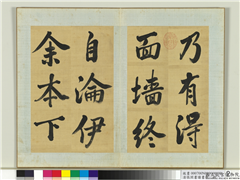 乃有得
面墙终
自淪伊
余本下